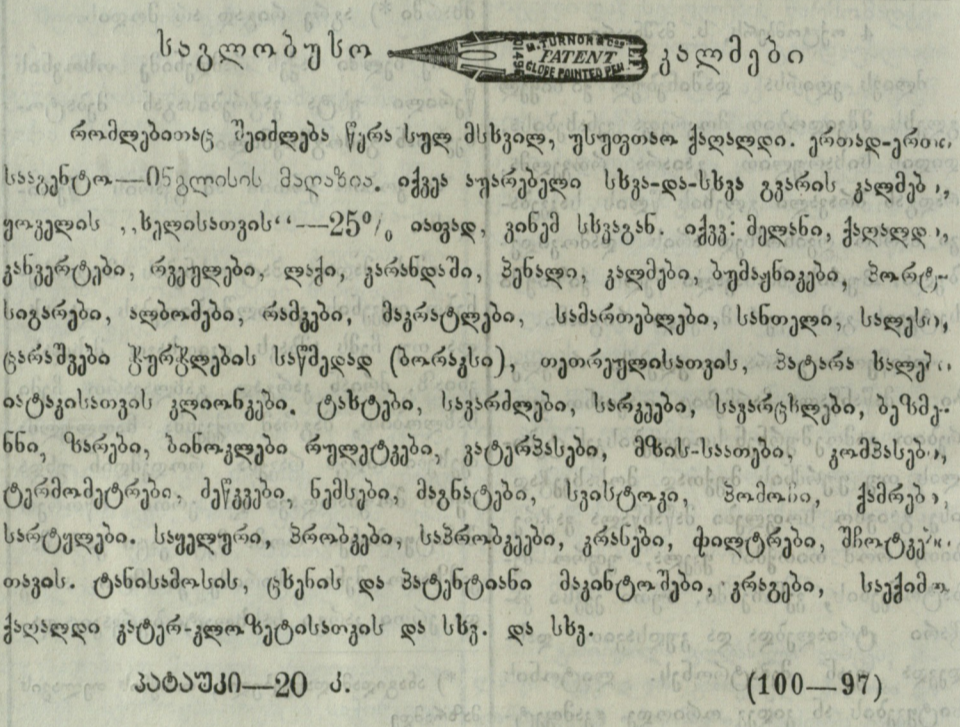 საგლობუსო M. TURNOR & COs PATENT GLOBE POINTED PEN კალმები
რომლებითაც შეიძლება წერა სულ მსხვილ, უსუფთაო ქაღალდი. ერთად-ერთი
სააგენტო—ინგლისის მაღაზია. იქვეა აუარებელი სხვა-და-სხვა გვარის კალმები,
ყოველის „ხელისათვის“—25% იაფად, ვინემ სხვაგან. იქვე: მელანი, ქაღალდი,
კანვერტები, რვეულები, ლაქი, კარანდაში, პენალი, კალმები, ბუმაჟნიკები, პორტ-
სიგარები, ალბომები, რამკები, მაკრატლები, სამართებლები, სანთელი, სალესი,
ცარაშვები ჭურჭლების საწმედად (ბორაკსი), თეთრეულისათვის, პატარა ხალები
იატაკისათვის კლიონკები. ტახტები, სავარძლები, სარკეები, სავარცხლები, ბეზმე-
ნნი, ზარები, ბინოკლები რულეტკები, ვატერპასები, მზის-საათები, კომპასები,
ტერმომეტრები, ძეწკვები, ნემსები, მაგნატები, სვისტოკი, პომოჩი, ქამრები,
სარტყლები. საყელური, პრობკები, საპრობკეები, კრასები, ფილტრები, შჩოტკები
თავის. ტანისამოსის, ცხენის და პატენტიანი მაკინტოშები, კრაგები, საექიმო
ქაღალდი ვატერ-კლოზეტისათვის და სხვ. და სხვ.
პატაუკი—20 კ. (100—97)